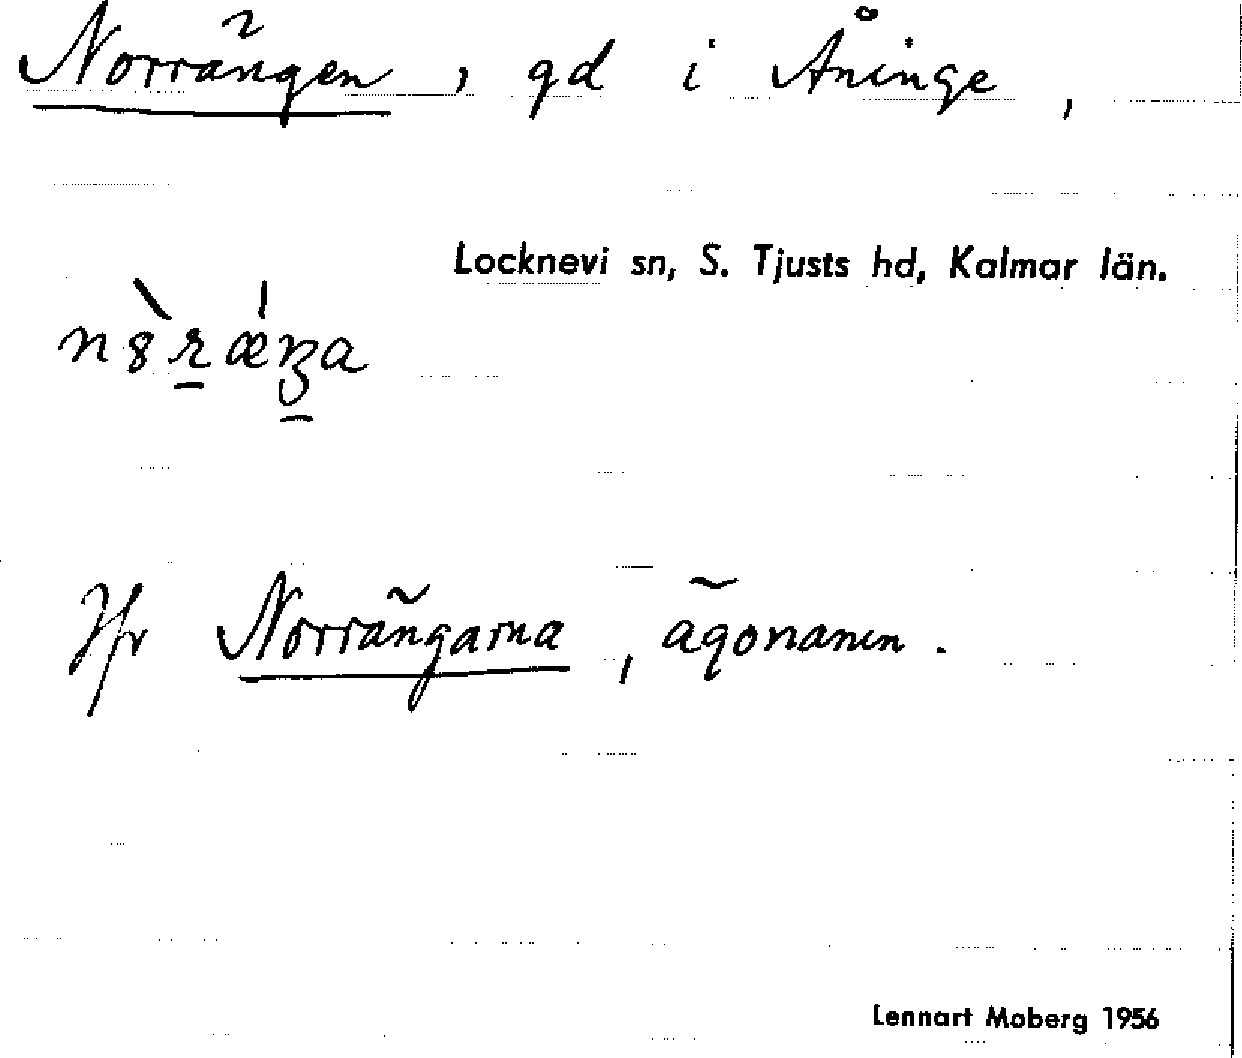 Norrängen, gd i Åninge,
Locknevi sn, S. Tjusts hd, Kalmar län.
Jfr Norrängarna, ägonamn.
Lennart Moberg 1956